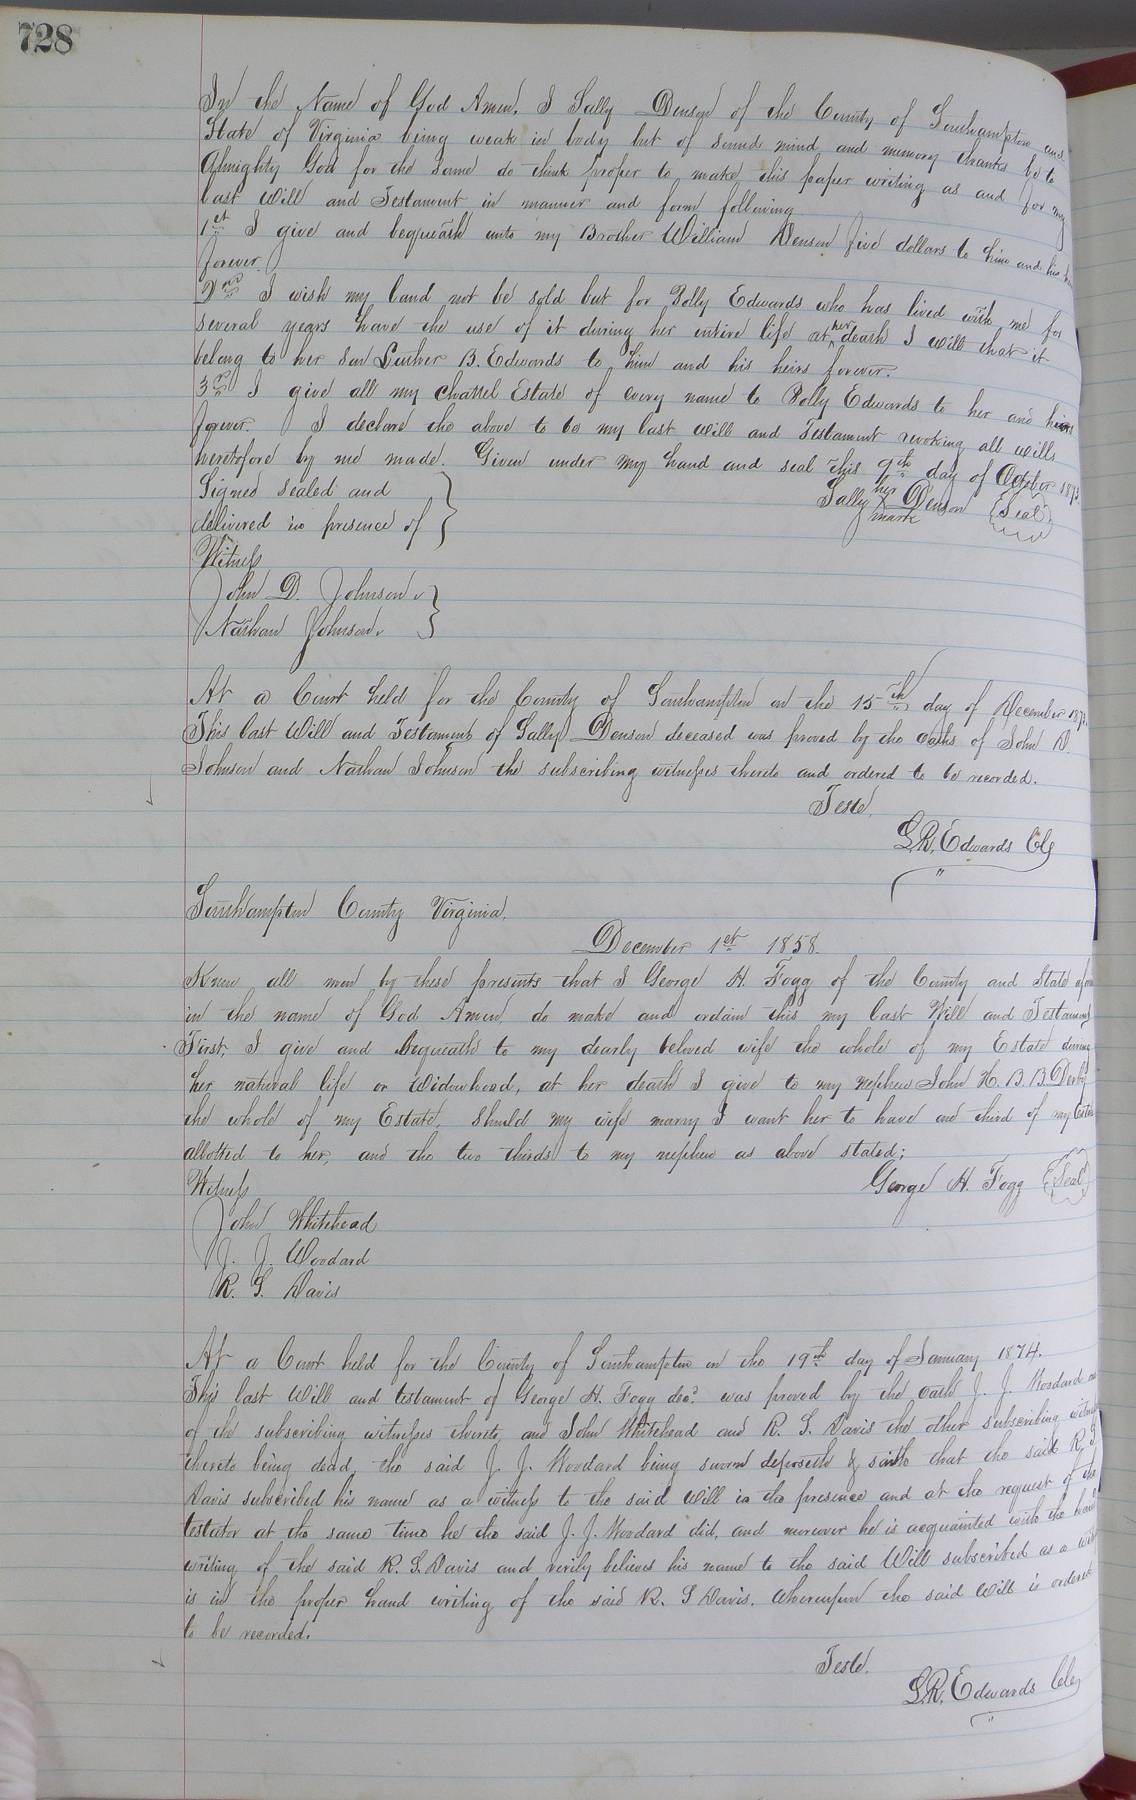 728
In the Name of God Amen. I Sally Denson of the County of Southampton and
State of Virginia being weak in body but of sound mind and memory thanks be to
Almighty God for the same do think proper to make this paper writing as and for my
last Will and Testament in manner and form following
1st I give and bequeath unto my Brother William Denson five dollars to him and his heirs
forever.
2nd I wish my land not be sold but for Polly Edwards who has lived with me for
several years have the use of it during her entire life at her death I will that it
belong to her son Luther B. Edwards to him and his heirs forever.
3rd I give all my chattel Estate of every name to Polly Edwards to her and heirs
forever. I declare the above to be my last will and Testament revoking all wills
heretofore by me made. Given under my hand and seal this 9th day of October 1873.
Signed sealed and
Sally her Denson (Seal)
mark
delivered in presence of
Witness
John D. Johnson
Nathan Johnson
At a Court held for the County of Southampton on the 15th day of December 1873.
This last Will and Testament of Sally Denson deceased was proved by the oaths of John D.
Johnson and Nathan Johnson the subscribing witnesses thereto and ordered to be recorded.
Teste,
L.R. Edwards Clk
Southampton County Virginia.
December 1st 1858.
Know all men by these presents that I George H. Fogg of the County and State afore
in the name of God Amen, do make and ordain this my last Will and Testament
First, I give and Bequeath to my dearly beloved wife the whole of my Estate during
her natural life or Widowhood, at her death I give to my nephew John H. B. B. Derby
the whole of my Estate, Should my wife marry I want her to have one third of my Estate
allotted to her, and the two thirds to my nephew as above stated;
Witness
George H. Fogg (Seal)
John Whitehead
J. J. Woodard
R. S. Davis
At a Court held for the County of Southampton on the 19th day of January 1874.
This last Will and testament of George H. Fogg decd. was proved by the oath J. J. Woodard one
of the subscribing witnesses thereto, and John Whitehead and R. S. Davis the other subscribing witnesses
thereto being dead, the said J. J. Woodard being sworn deposeth & saith that the said R. S.
Davis subscribed his name as a witness to the said Will in the presence and at the request of the
testator at the same time he the said J. J. Woodard did, and moreover he is acquainted with the hand
writing of the said R. S. Davis and verily believes his name to the said Will subscribed as a witness
is in the proper hand writing of the said R. S Davis. Whereupon the said Will is ordered
to be recorded.
Teste.
L.R. Edwards Clk